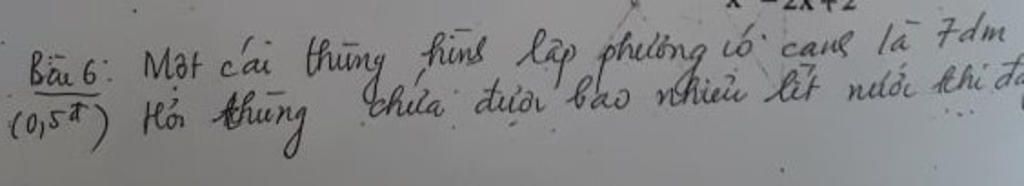 x - 2x + 2
Bài 6: Một cái thùng hình lập phương có cạnh là 7dm
(0,5đ) Hỏi thùng chứa được bao nhiêu lít nước thì đầ